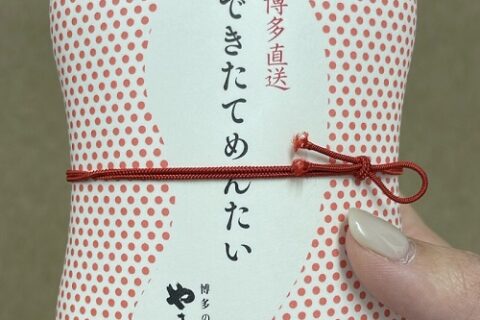 博多直送
できたてめんたい
博多の
や